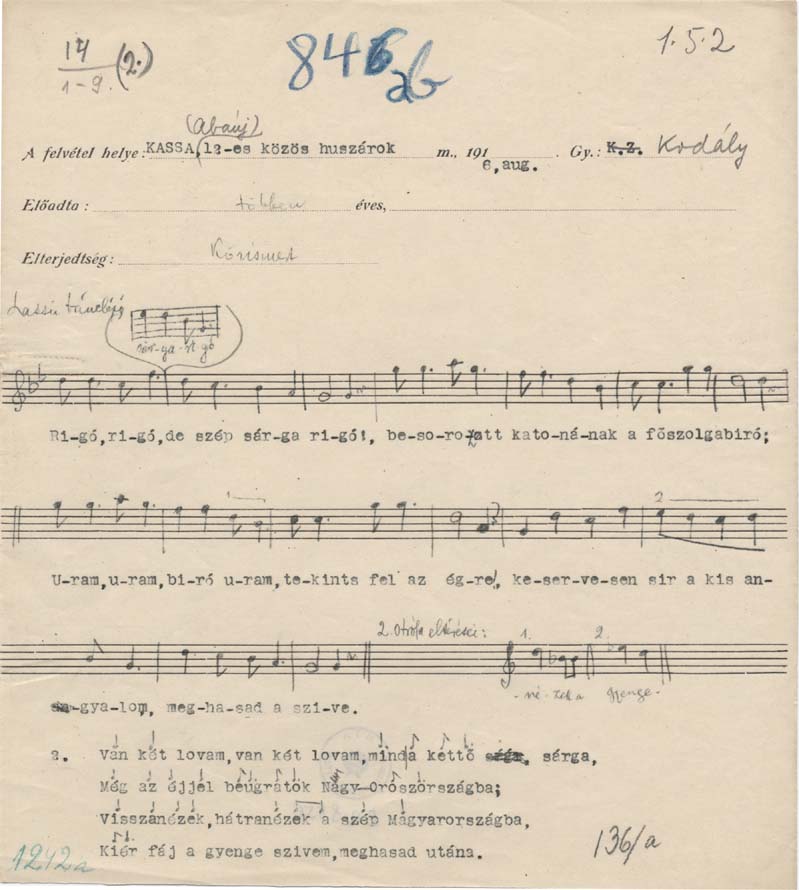 14
1-9. (2.)
846
ab
1.5.2
(Abaúj)
A felvétel helye: KASSA, 12-es közös huszárok m., 191 6, aug. Gy.: K.Z. Kodály
Előadta: többen éves,
Elterjedtség: Közismert
Lassú tánclépés
sár-ga-ri-gó
Ri-gó,ri-gó,de szép sár-ga ri-gó!, be-so-ro-zott kato-ná-nak a főszolgabiró;
1
2
U-ram,u-ram,bi-ró u-ram,te-kints fel az ég-re!, ke-ser-ve-sen sir a kis an-
2. strófa eltérései: 1. 2.
-né-zek a gyenge-
-gya-lom, meg-ha-sad a szi-ve.
2. Van két lovam,van két lovam,minda kettő sárga,
Még az éjjel beugratok Nagy-Oroszországba;
Visszanézek,hátranézek a szép Magyarországba,
Kiér fáj a gyenge szivem,meghasad utána.
1242a
136/a